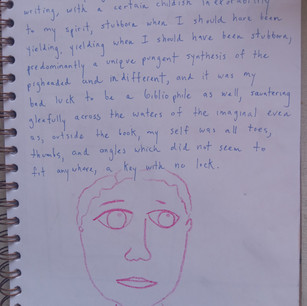 writing, with a certain childish inexorability
to my spirit, stubborn when I should have been
yielding, yielding when I should have been stubborn,
predominantly a unique pungent synthesis of the
pigheaded and indifferent, and it was my
bad luck to be a bibliophile as well, sauntering
gleefully across the waters of the imaginal even
as, outside the book, my self was all toes,
thumbs, and angles which did not seem to
fit anywhere, a key with no lock.